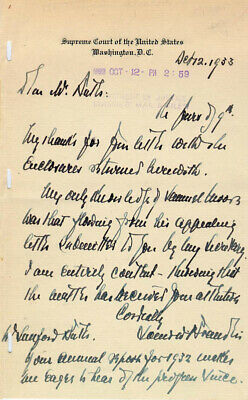 Supreme Court of the United States
Washington, D.C.
Oct 12. 1933
1933 OCT 12 PM 2 59
Dear Mr. Bates:
Re yours of 9th.
My thanks for your letter with the
enclosures returned herewith.
My only knowledge of Samuel
was that flowing from his appealing
letter submitted to you by my secretary.
I am entirely content - knowing that
the matter has received your attention
Cordially
Louis D Brandeis
Sanford Bates
Your annual report for 1932 makes
me eager to hear of the progress since.